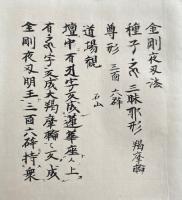 金剛夜叉法
種子 三昧耶形 羯摩輪
尊形 三面六臂
道場觀 石山
壇中有字変成蓮華座上
有字変成大羯摩輪変成
金剛夜叉明王三面六臂持衆